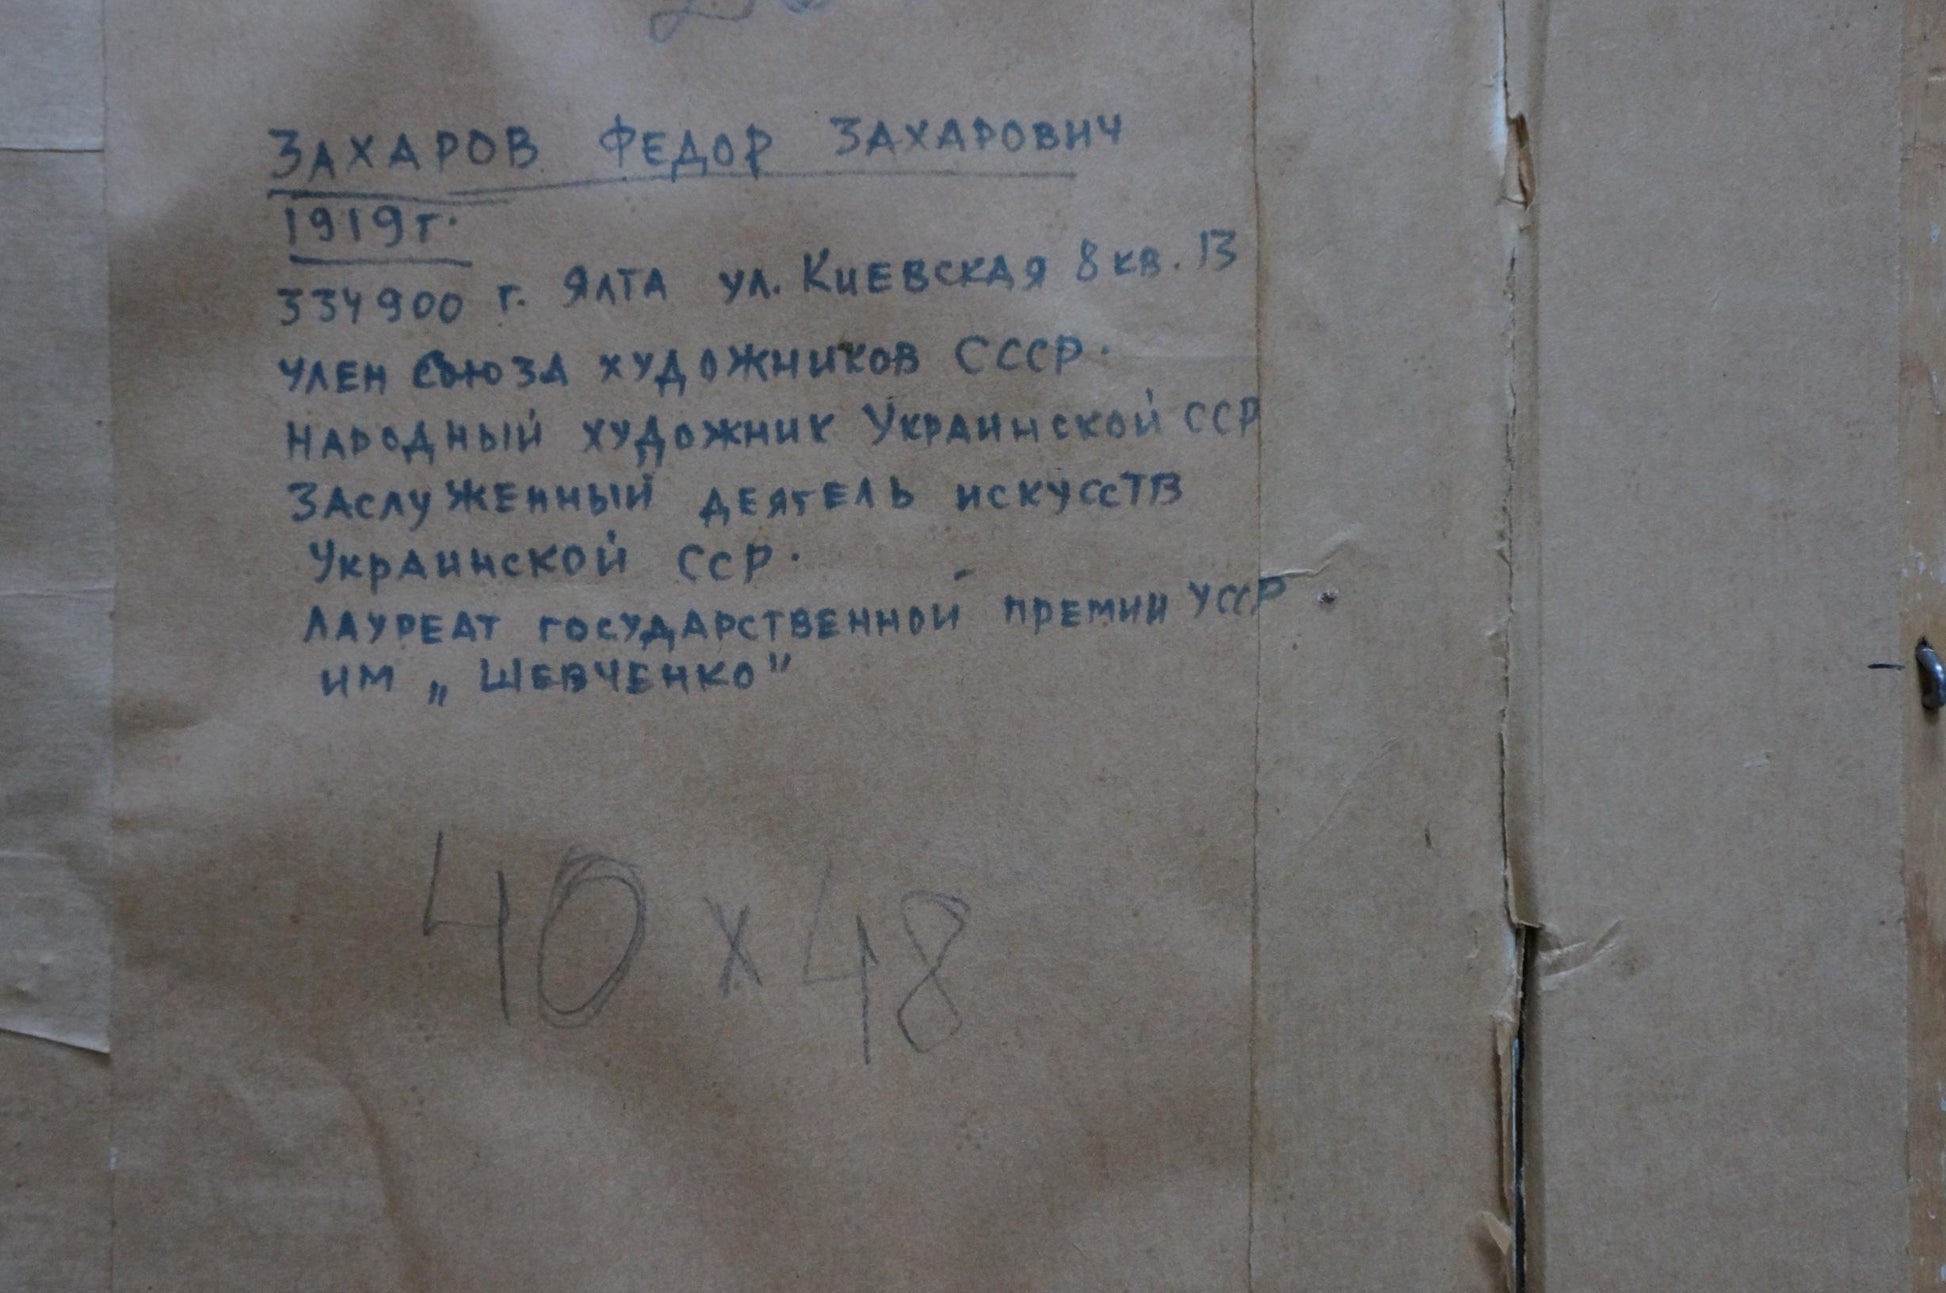 ЗАХАРОВ ФЕДОР ЗАХАРОВИЧ
1919г.
334900 г. ЯЛТА ул. КИЕВСКАЯ 8 кв. 13
ЧЛЕН СОЮЗА ХУДОЖНИКОВ СССР.
НАРОДНЫЙ ХУДОЖНИК УКРАИНСКОЙ ССР
ЗАСЛУЖЕННЫЙ ДЕЯТЕЛЬ ИСКУССТВ
УКРАИНСКОЙ ССР.
ЛАУРЕАТ ГОСУДАРСТВЕННОЙ ПРЕМИИ УССР
ИМ „ШЕВЧЕНКО"
40 х 48